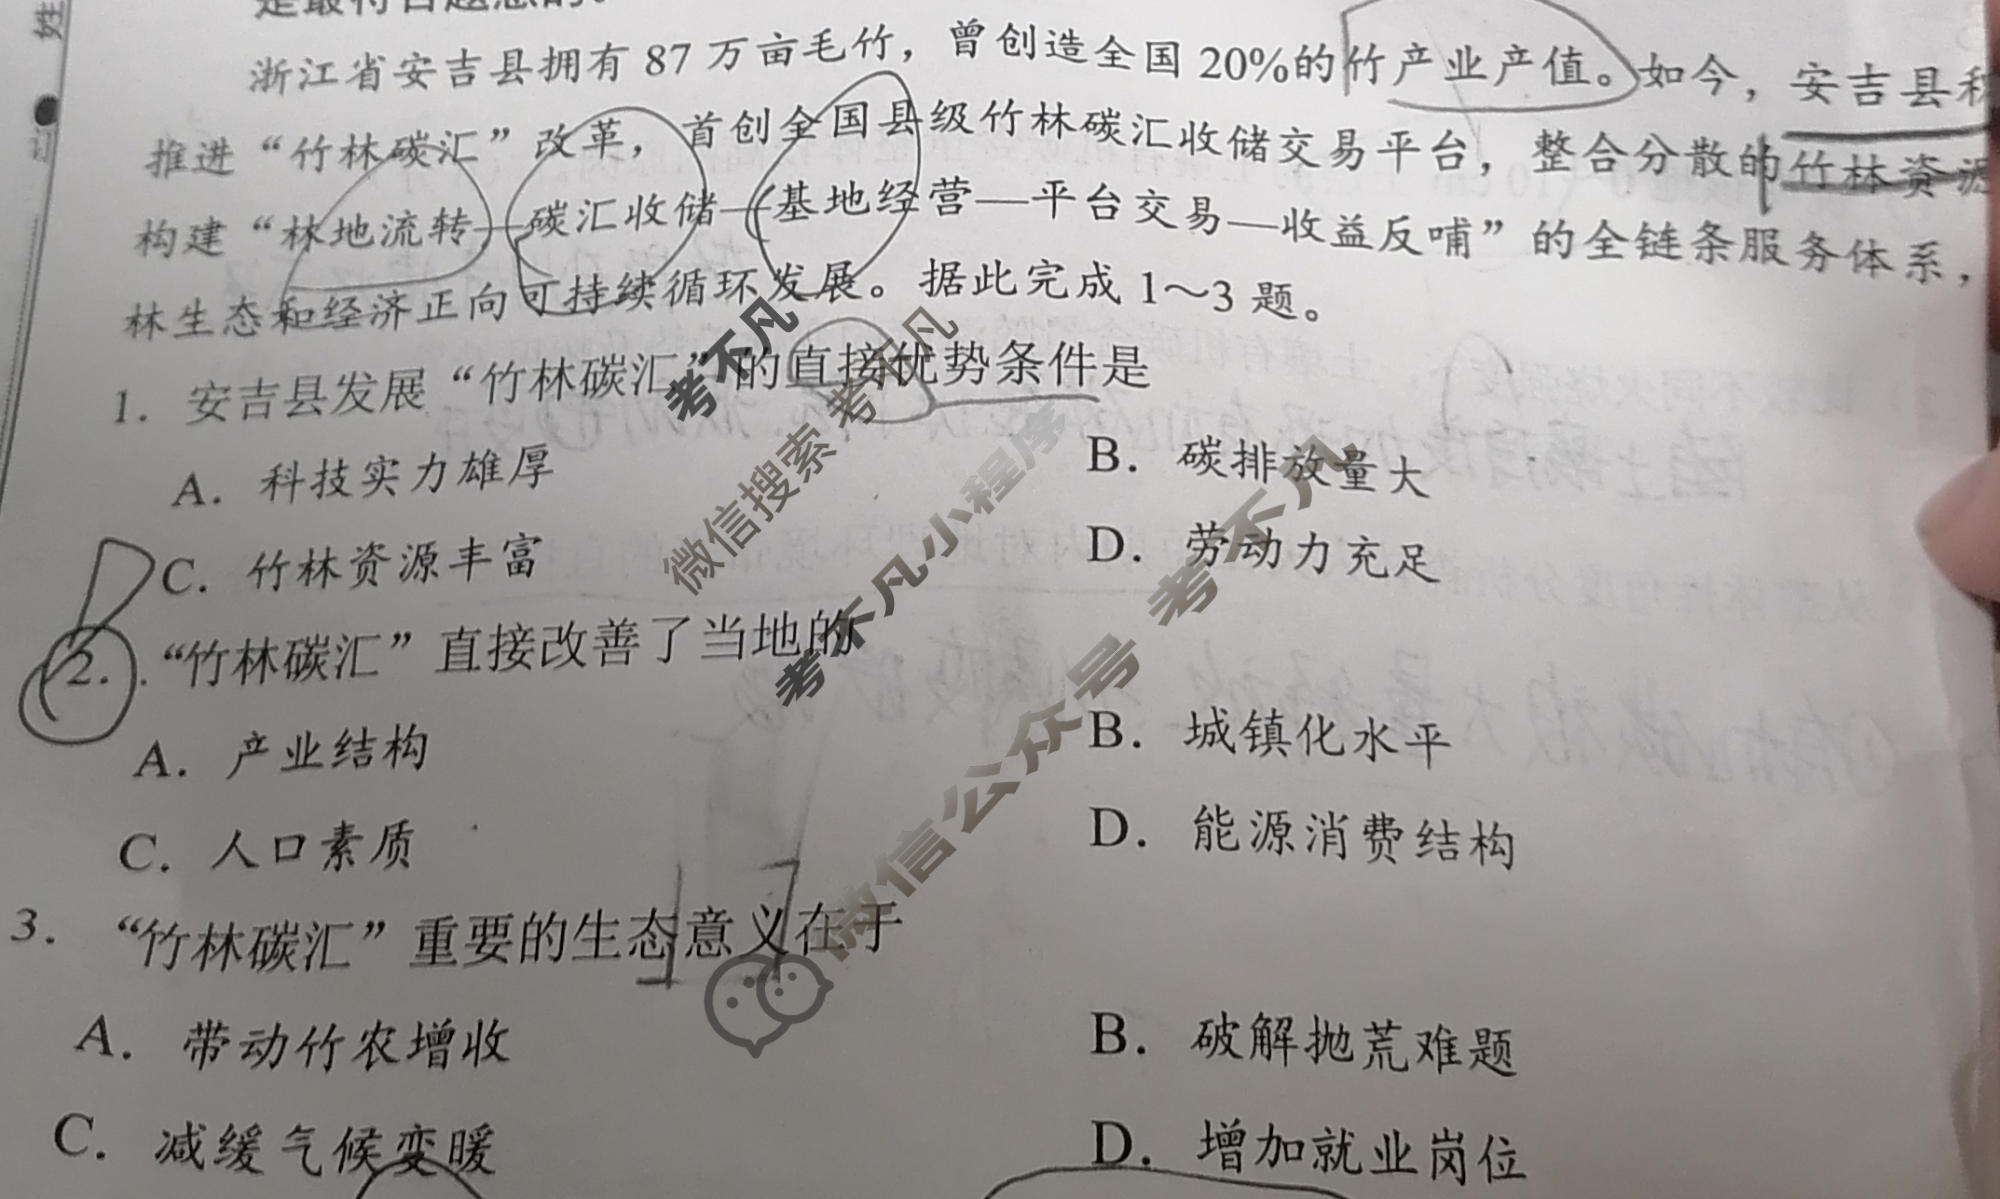 姓
是最符合题意的。
浙江省安吉县拥有 87 万亩毛竹，曾创造全国 20%的竹产业产值。如今，安吉县积
推进“竹林碳汇”改革，首创全国县级竹林碳汇收储交易平台，整合分散的竹林资源
构建“林地流转—碳汇收储—基地经营—平台交易—收益反哺”的全链条服务体系，
林生态和经济正向可持续循环发展。据此完成 1～3 题。
1．安吉县发展“竹林碳汇”的直接优势条件是
A．科技实力雄厚
B．碳排放量大
C．竹林资源丰富
D．劳动力充足
2．“竹林碳汇”直接改善了当地的
A．产业结构
B．城镇化水平
C．人口素质
D．能源消费结构
3．“竹林碳汇”重要的生态意义在于
A．带动竹农增收
B．破解抛荒难题
C．减缓气候变暖
D．增加就业岗位
订
考不凡
微信搜索 考不凡
考不凡小程序
微信公众号 考不凡